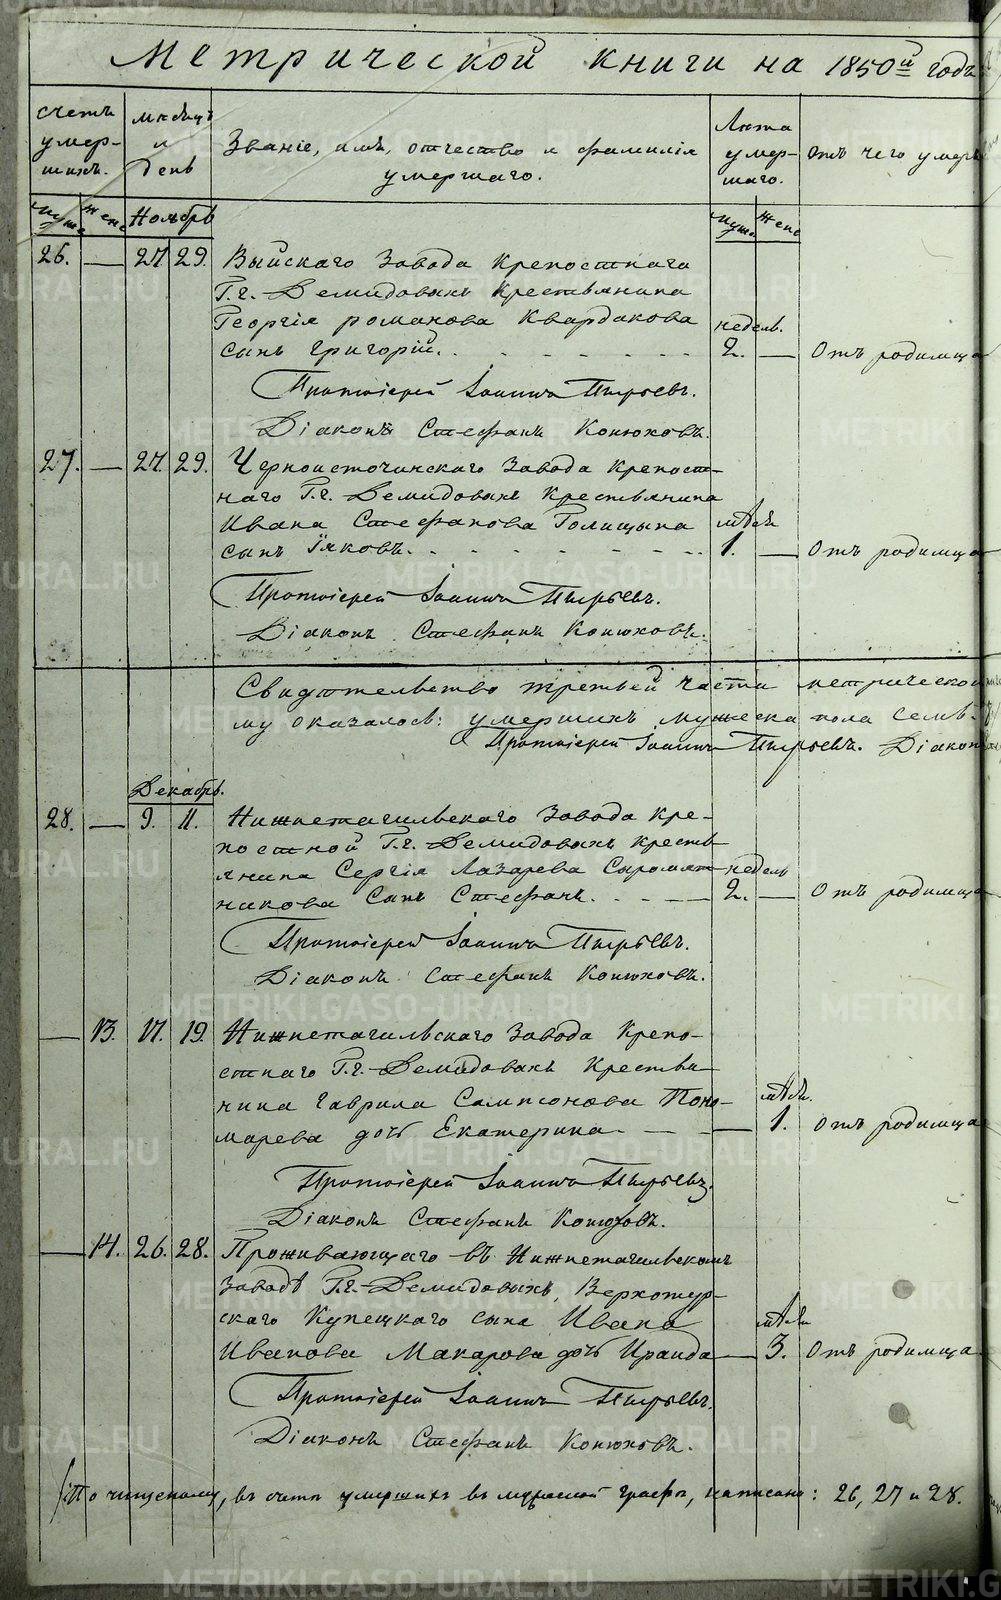 Метрической книги на 1850й годъ
Счетъ умер-шихъ.
Мѣсяцъ и день
Званіе, имя, отчество и фамилія умершаго.
Лѣта умер-шаго.
Отъ чего умеръ
Муж. Жен.
Ноябрь
Муж. Жен.
26. — 27 29. Выйскаго Завода Крепостнаго
Г.г. Демидовыхъ Крестьянина
Георгія романова Квардакова недель.
сынъ Григорій. 2. — Отъ родимца
Протоіерей Іоаннъ Пырьевъ.
Діаконъ Стефанъ Конюховъ.
27. — 27 29. Черноисточинскаго Завода Крепост-
наго Г.г. Демидовыхъ Крестьянина
Ивана Стефанова Голицына мѣся
сынъ Іяковъ. 1. — Отъ родимца
Протоіерей Іоаннъ Пырьевъ.
Діаконъ Стефанъ Конюховъ.
Свидѣтельство третьей части метрической
му оказалось: умершихъ мужеска пола семь-
Протоіерей Іоаннъ Пырьевъ. Діаконъ
Декабрь.
28. — 9. 11. Нижнетагильскаго Завода Кре-
постной Г.г. Демидовыхъ крестья-
янина Сергія Лазарева Сыромят- недель
никова Сынъ Стефанъ. 2. — Отъ родимца
Протоіерей Іоаннъ Пырьевъ.
Діаконъ Стефанъ Конюховъ.
— 13. 17. 19. Нижнетагильскаго Завода Крепо-
стнаго Г.г. Демидовыхъ Крестья-
нина Гаврила Сампсонова Поно- мѣся.
марева дочь Екатерина — 1. Отъ родимца
Протоіерей Іоаннъ Пырьевъ.
Діаконъ Стефанъ Конюховъ.
— 14. 26. 28. Проживающаго въ Нижнетагильскомъ
Заводѣ Г.г. Демидовыхъ, Верхотур-
скаго Купецкаго сына Ивана мѣся
Иванова Макарова дочь Ираида — 3. Отъ родимца
Протоіерей Іоаннъ Пырьевъ.
Діаконъ Стефанъ Конюховъ.
По чищеному, въ счетѣ умершихъ въ мужеской графѣ, написано: 26, 27 и 28.
METRIKI.GASO-URAL.RU